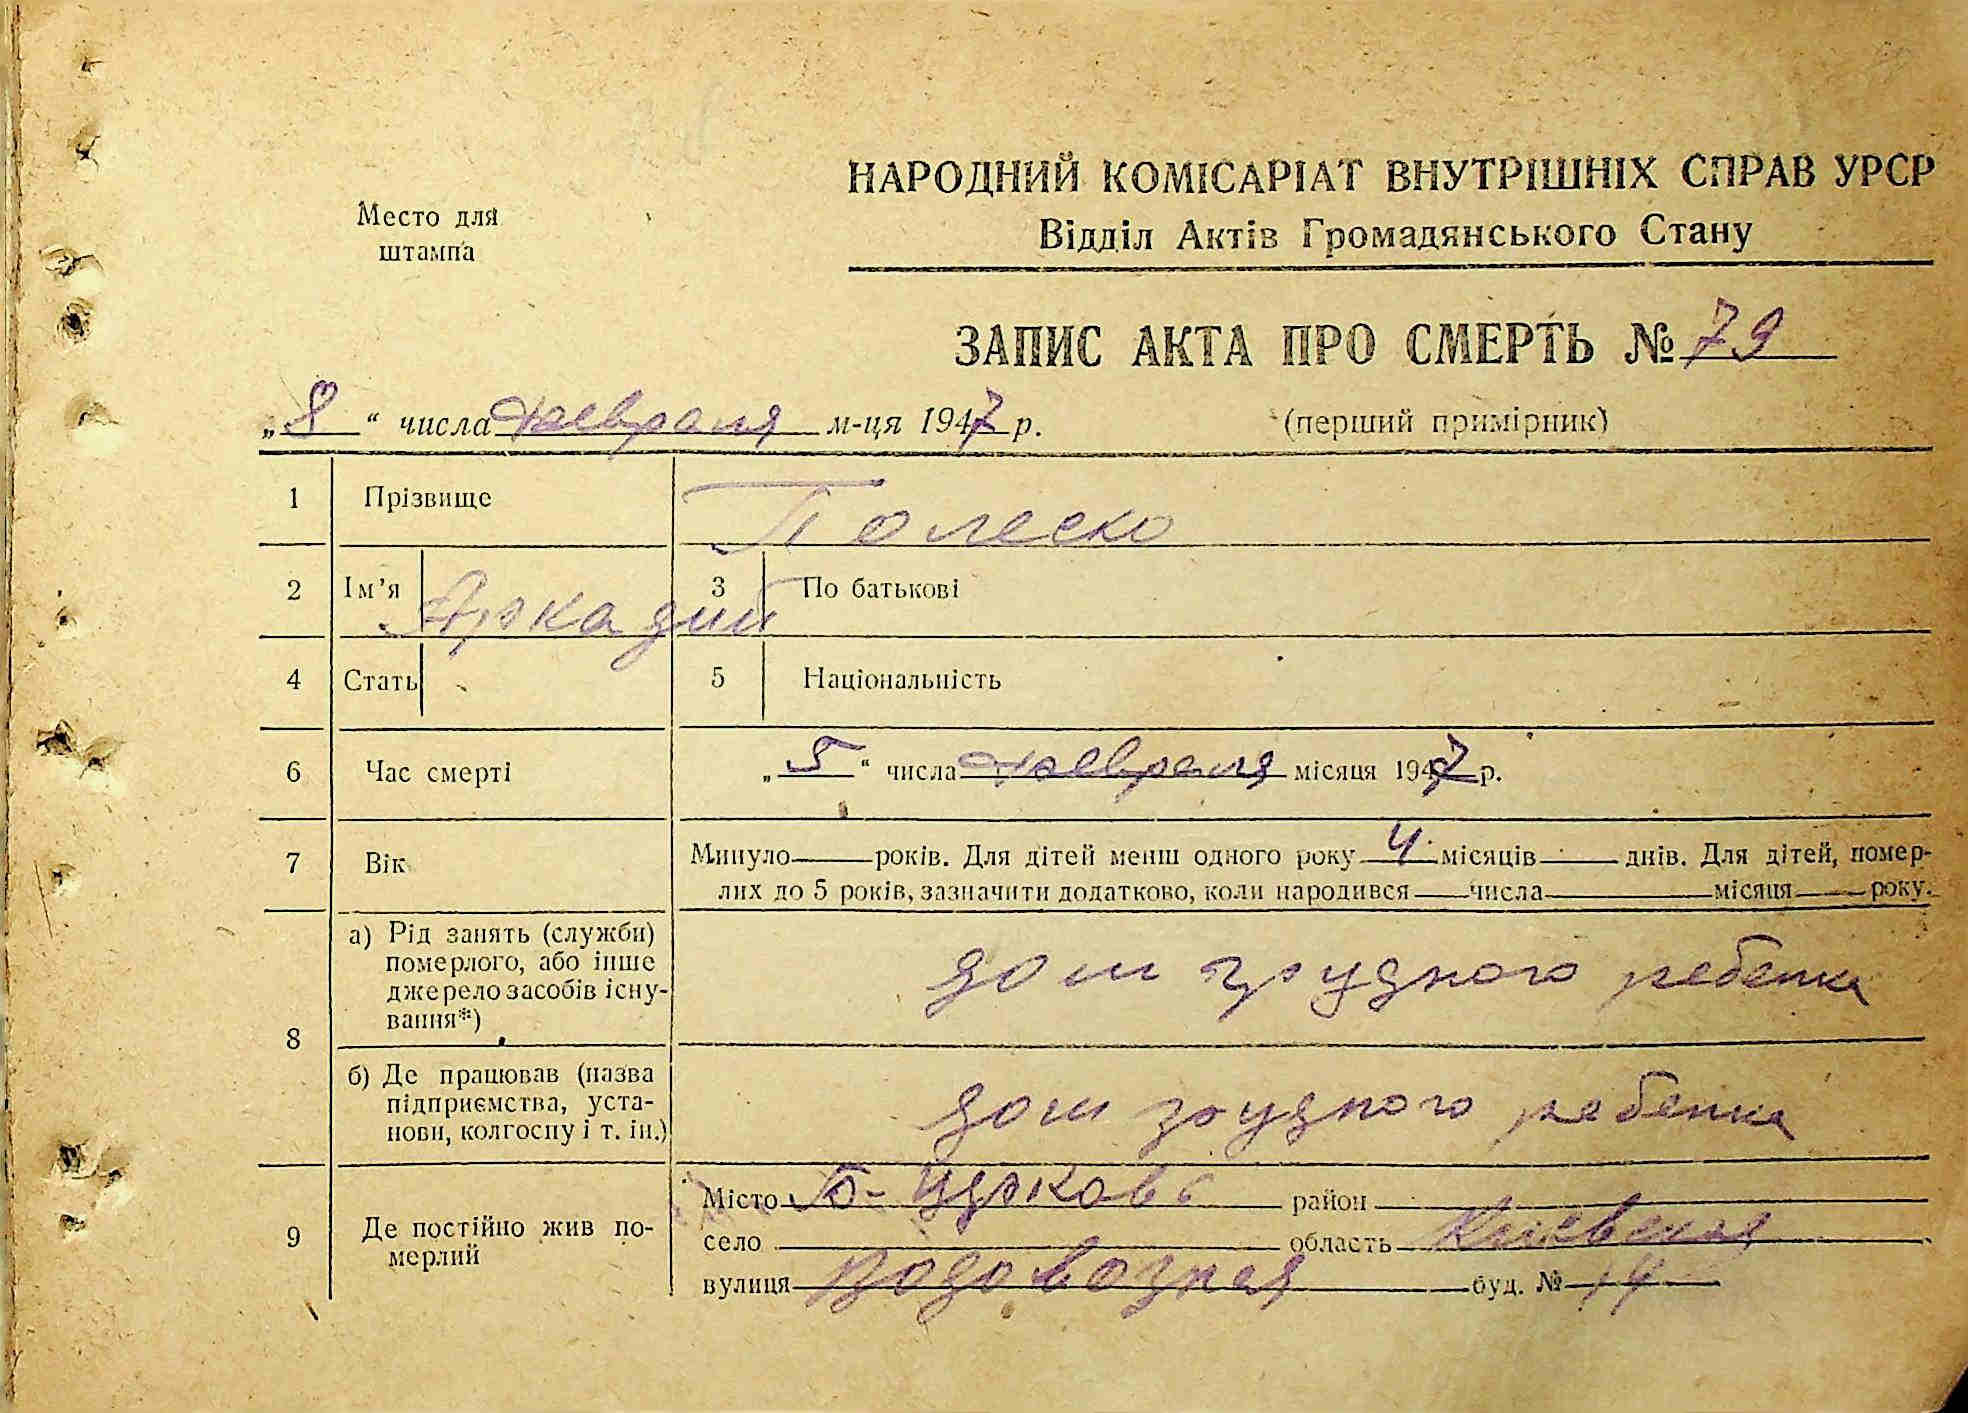 НАРОДНИЙ КОМІСАРІАТ ВНУТРІШНІХ СПРАВ УРСР
Відділ Актів Громадянського Стану
Место для
штампа
ЗАПИС АКТА ПРО СМЕРТЬ № 79
„8“ числа февраля м-ця 1947 р.
(перший примірник)
1 Прізвище Полеско
2 Ім’я Аркадий 3 По батькові
4 Стать 5 Національність
6 Час смерті „5“ числа февраля місяця 1947 р.
7 Вік Минуло років. Для дітей менш одного року 4 місяців днів. Для дітей, помер-
лих до 5 років, зазначити додатково, коли народився числа місяця року.
8
а) Рід занять (служби)
померлого, або інше
джерело засобів існу-
вання*)
дом грудного ребенка
б) Де працював (назва
підприємства, уста-
нови, колгоспу і т. ін.)
дом грудного ребенка
9 Де постійно жив по-
мерлий
Місто Б-Церковь район
село область Киевская
вулиця буд. № 14